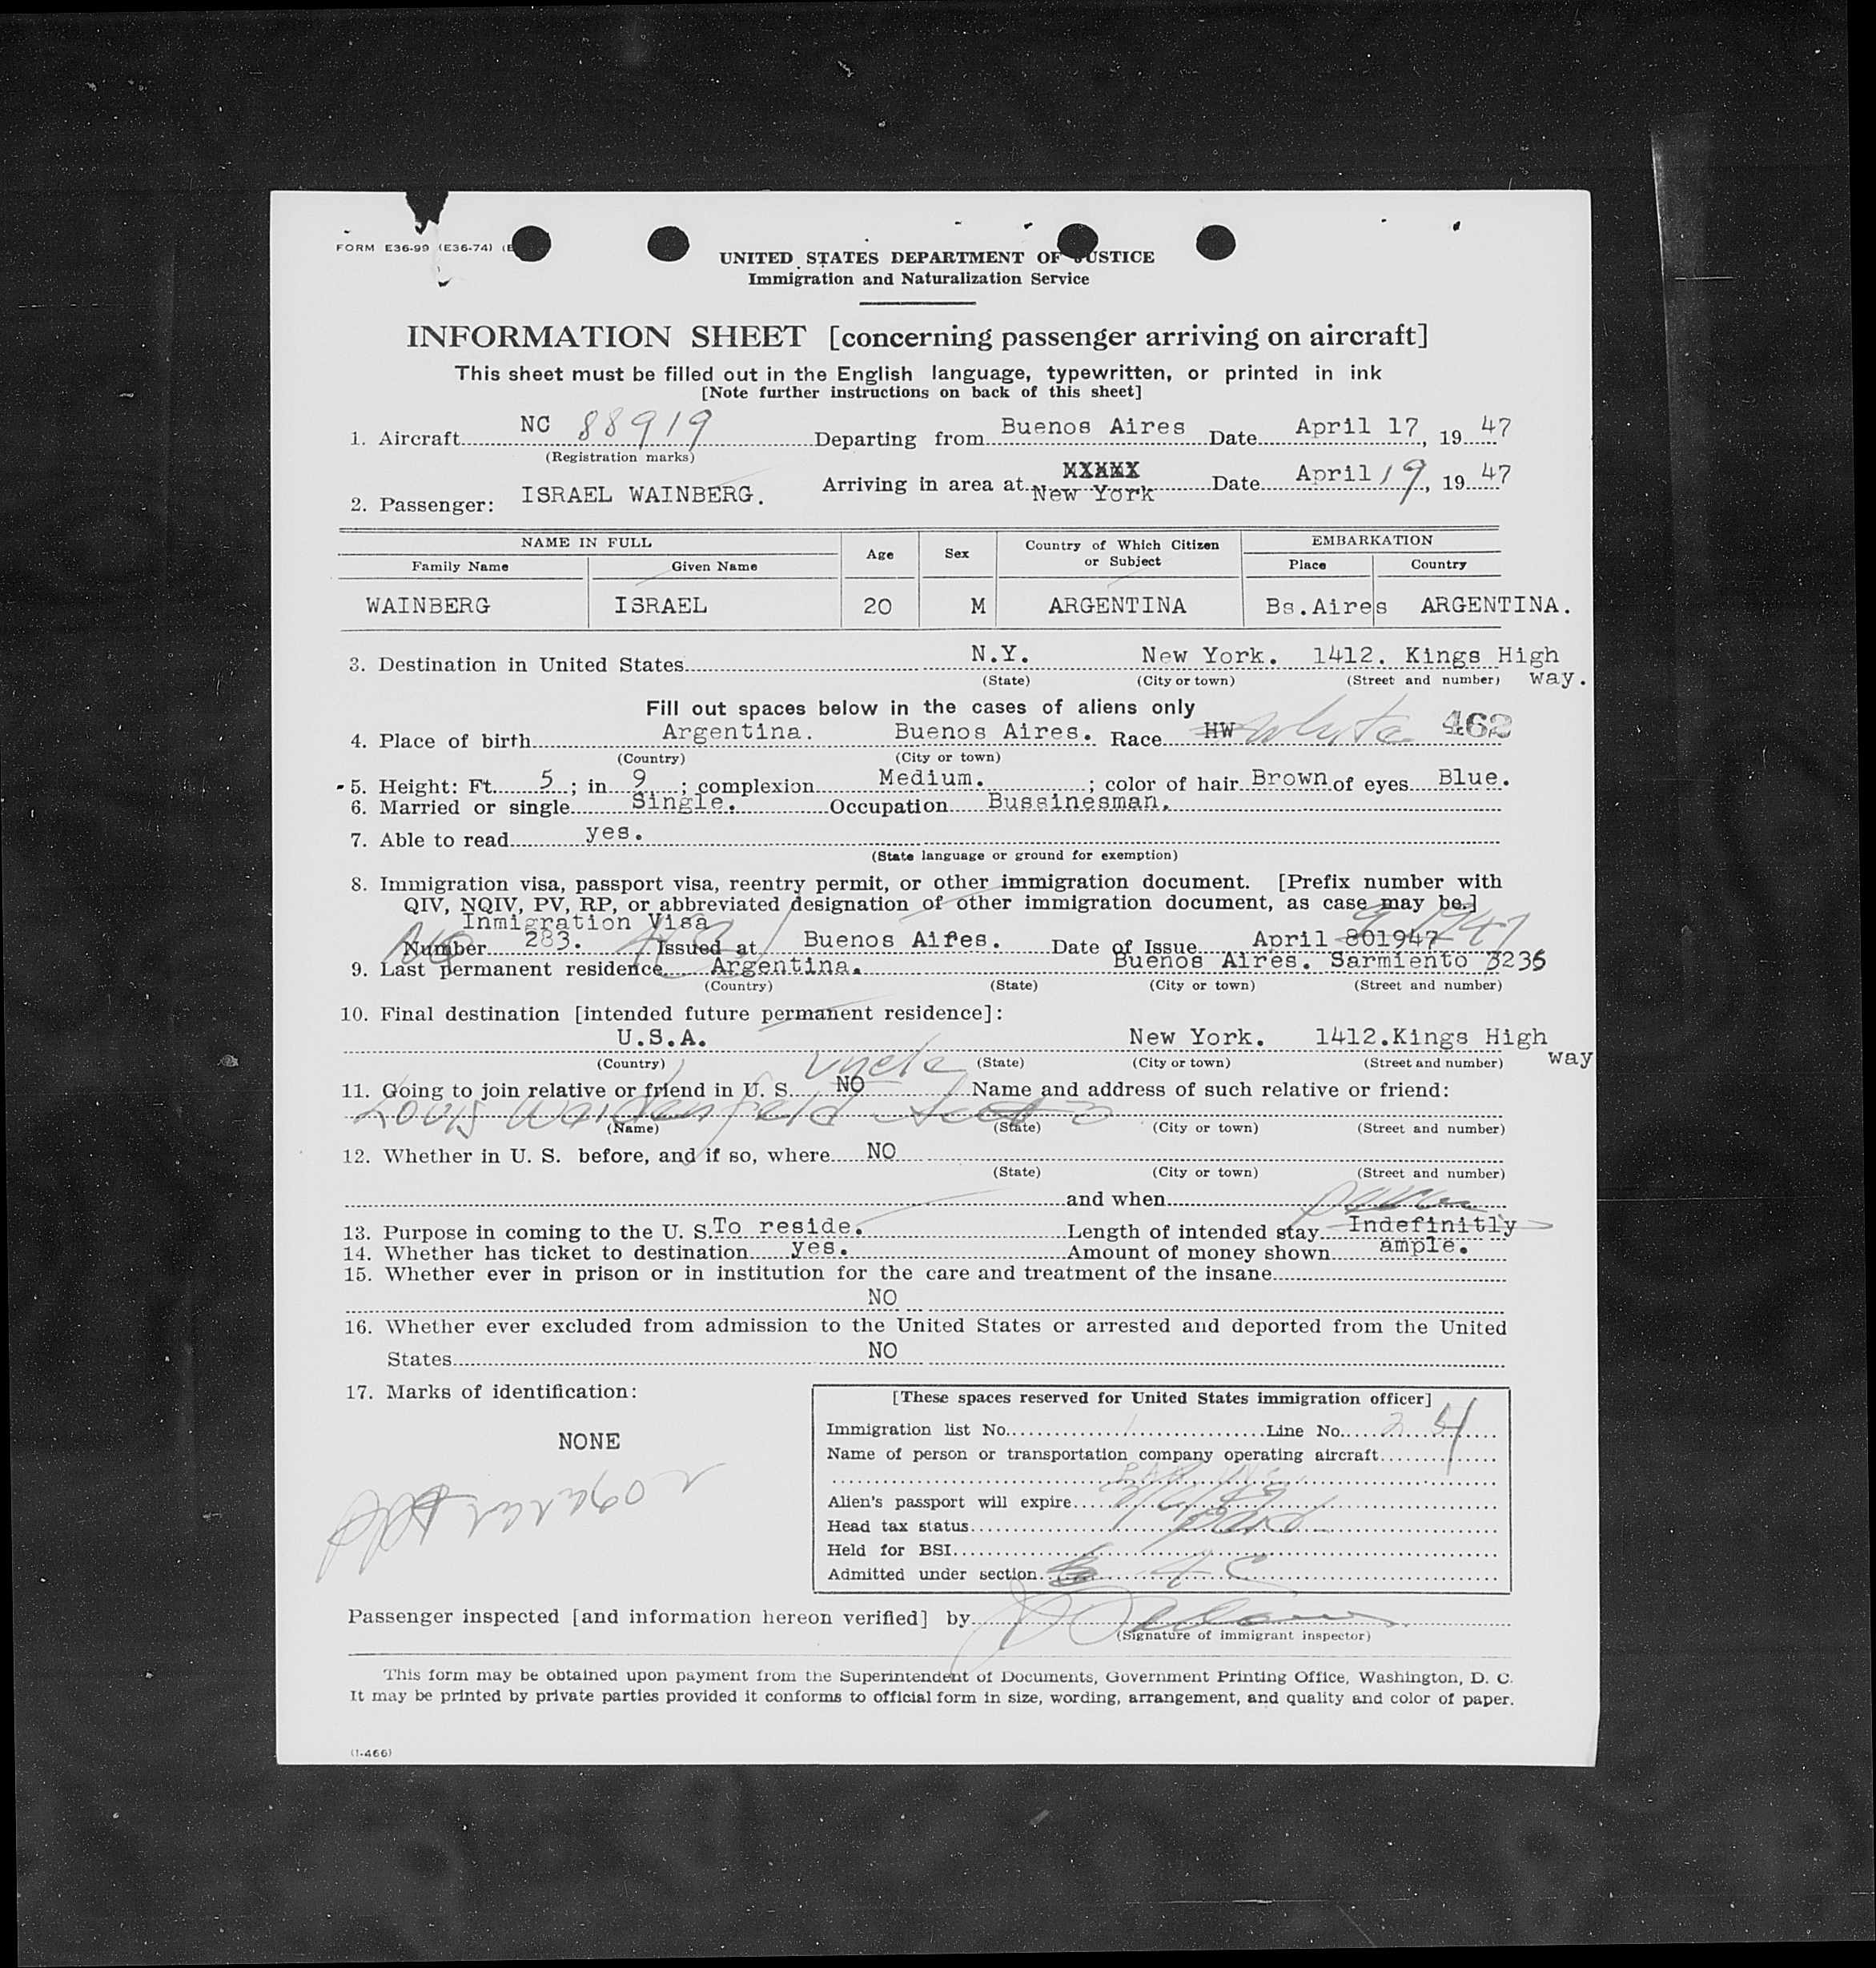 FORM E36-99 (E36-74) (E
UNITED STATES DEPARTMENT OF JUSTICE
Immigration and Naturalization Service
INFORMATION SHEET [concerning passenger arriving on aircraft]
This sheet must be filled out in the English language, typewritten, or printed in ink
[Note further instructions on back of this sheet]
1. Aircraft NC 88919 Departing from Buenos Aires Date April 17, 1947
(Registration marks)
Arriving in area at New York Date April 19, 1947
2. Passenger: ISRAEL WAINBERG.
NAME IN FULL Age Sex Country of Which Citizen or Subject EMBARKATION
Family Name Given Name Place Country
WAINBERG ISRAEL 20 M ARGENTINA Bs.Aires ARGENTINA.
3. Destination in United States N.Y. New York. 1412. Kings High way.
(State) (City or town) (Street and number)
Fill out spaces below in the cases of aliens only
4. Place of birth Argentina. Buenos Aires. Race HW white 462
(Country) (City or town)
5. Height: Ft. 5; in. 9; complexion Medium.; color of hair Brown of eyes Blue.
6. Married or single Single. Occupation Bussinesman.
7. Able to read yes.
(State language or ground for exemption)
8. Immigration visa, passport visa, reentry permit, or other immigration document. [Prefix number with
QIV, NQIV, PV, RP, or abbreviated designation of other immigration document, as case may be.]
Inmigration Visa
Number 283. Issued at Buenos Aires. Date of Issue April 801947
9. Last permanent residence Argentina. Buenos Aires. Sarmiento 3236
(Country) (State) (City or town) (Street and number)
10. Final destination [intended future permanent residence]:
U.S.A. New York. 1412.Kings High way
(Country) (State) (City or town) (Street and number)
11. Going to join relative or friend in U. S. NO uncle Name and address of such relative or friend:
Louis
(Name) (State) (City or town) (Street and number)
12. Whether in U. S. before, and if so, where NO
(State) (City or town) (Street and number)
and when
13. Purpose in coming to the U. S. To reside. Length of intended stay Indefinitly
14. Whether has ticket to destination yes. Amount of money shown ample.
15. Whether ever in prison or in institution for the care and treatment of the insane
NO
16. Whether ever excluded from admission to the United States or arrested and deported from the United
States NO
17. Marks of identification:
NONE
[These spaces reserved for United States immigration officer]
Immigration list No. 1 Line No. 2 4
Name of person or transportation company operating aircraft
Alien's passport will expire
Head tax status Paid
Held for BSI
Admitted under section
Passenger inspected [and information hereon verified] by
(Signature of immigrant inspector)
This form may be obtained upon payment from the Superintendent of Documents, Government Printing Office, Washington, D. C.
It may be printed by private parties provided it conforms to official form in size, wording, arrangement, and quality and color of paper.
(1-466)